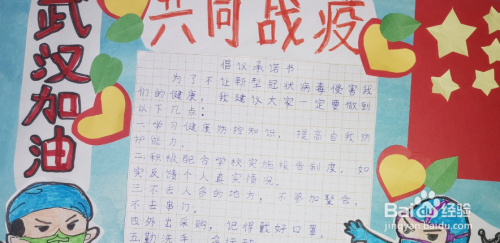 共同战疫
武汉加油
倡议承诺书
为了不让新型冠状病毒侵害我
们的健康，我建议大家一定要做到
以下几点：
一.学习健康防控知识，提高自我防
护能力.
二.积极配合学校实施报告制度，如
实反馈个人真实情况.
三.不去人多的地方，不参加聚会，
不去串门.
四.外出采购，记得戴好口罩
五.勤洗
Baidu 经验
jingyan.baidu.com